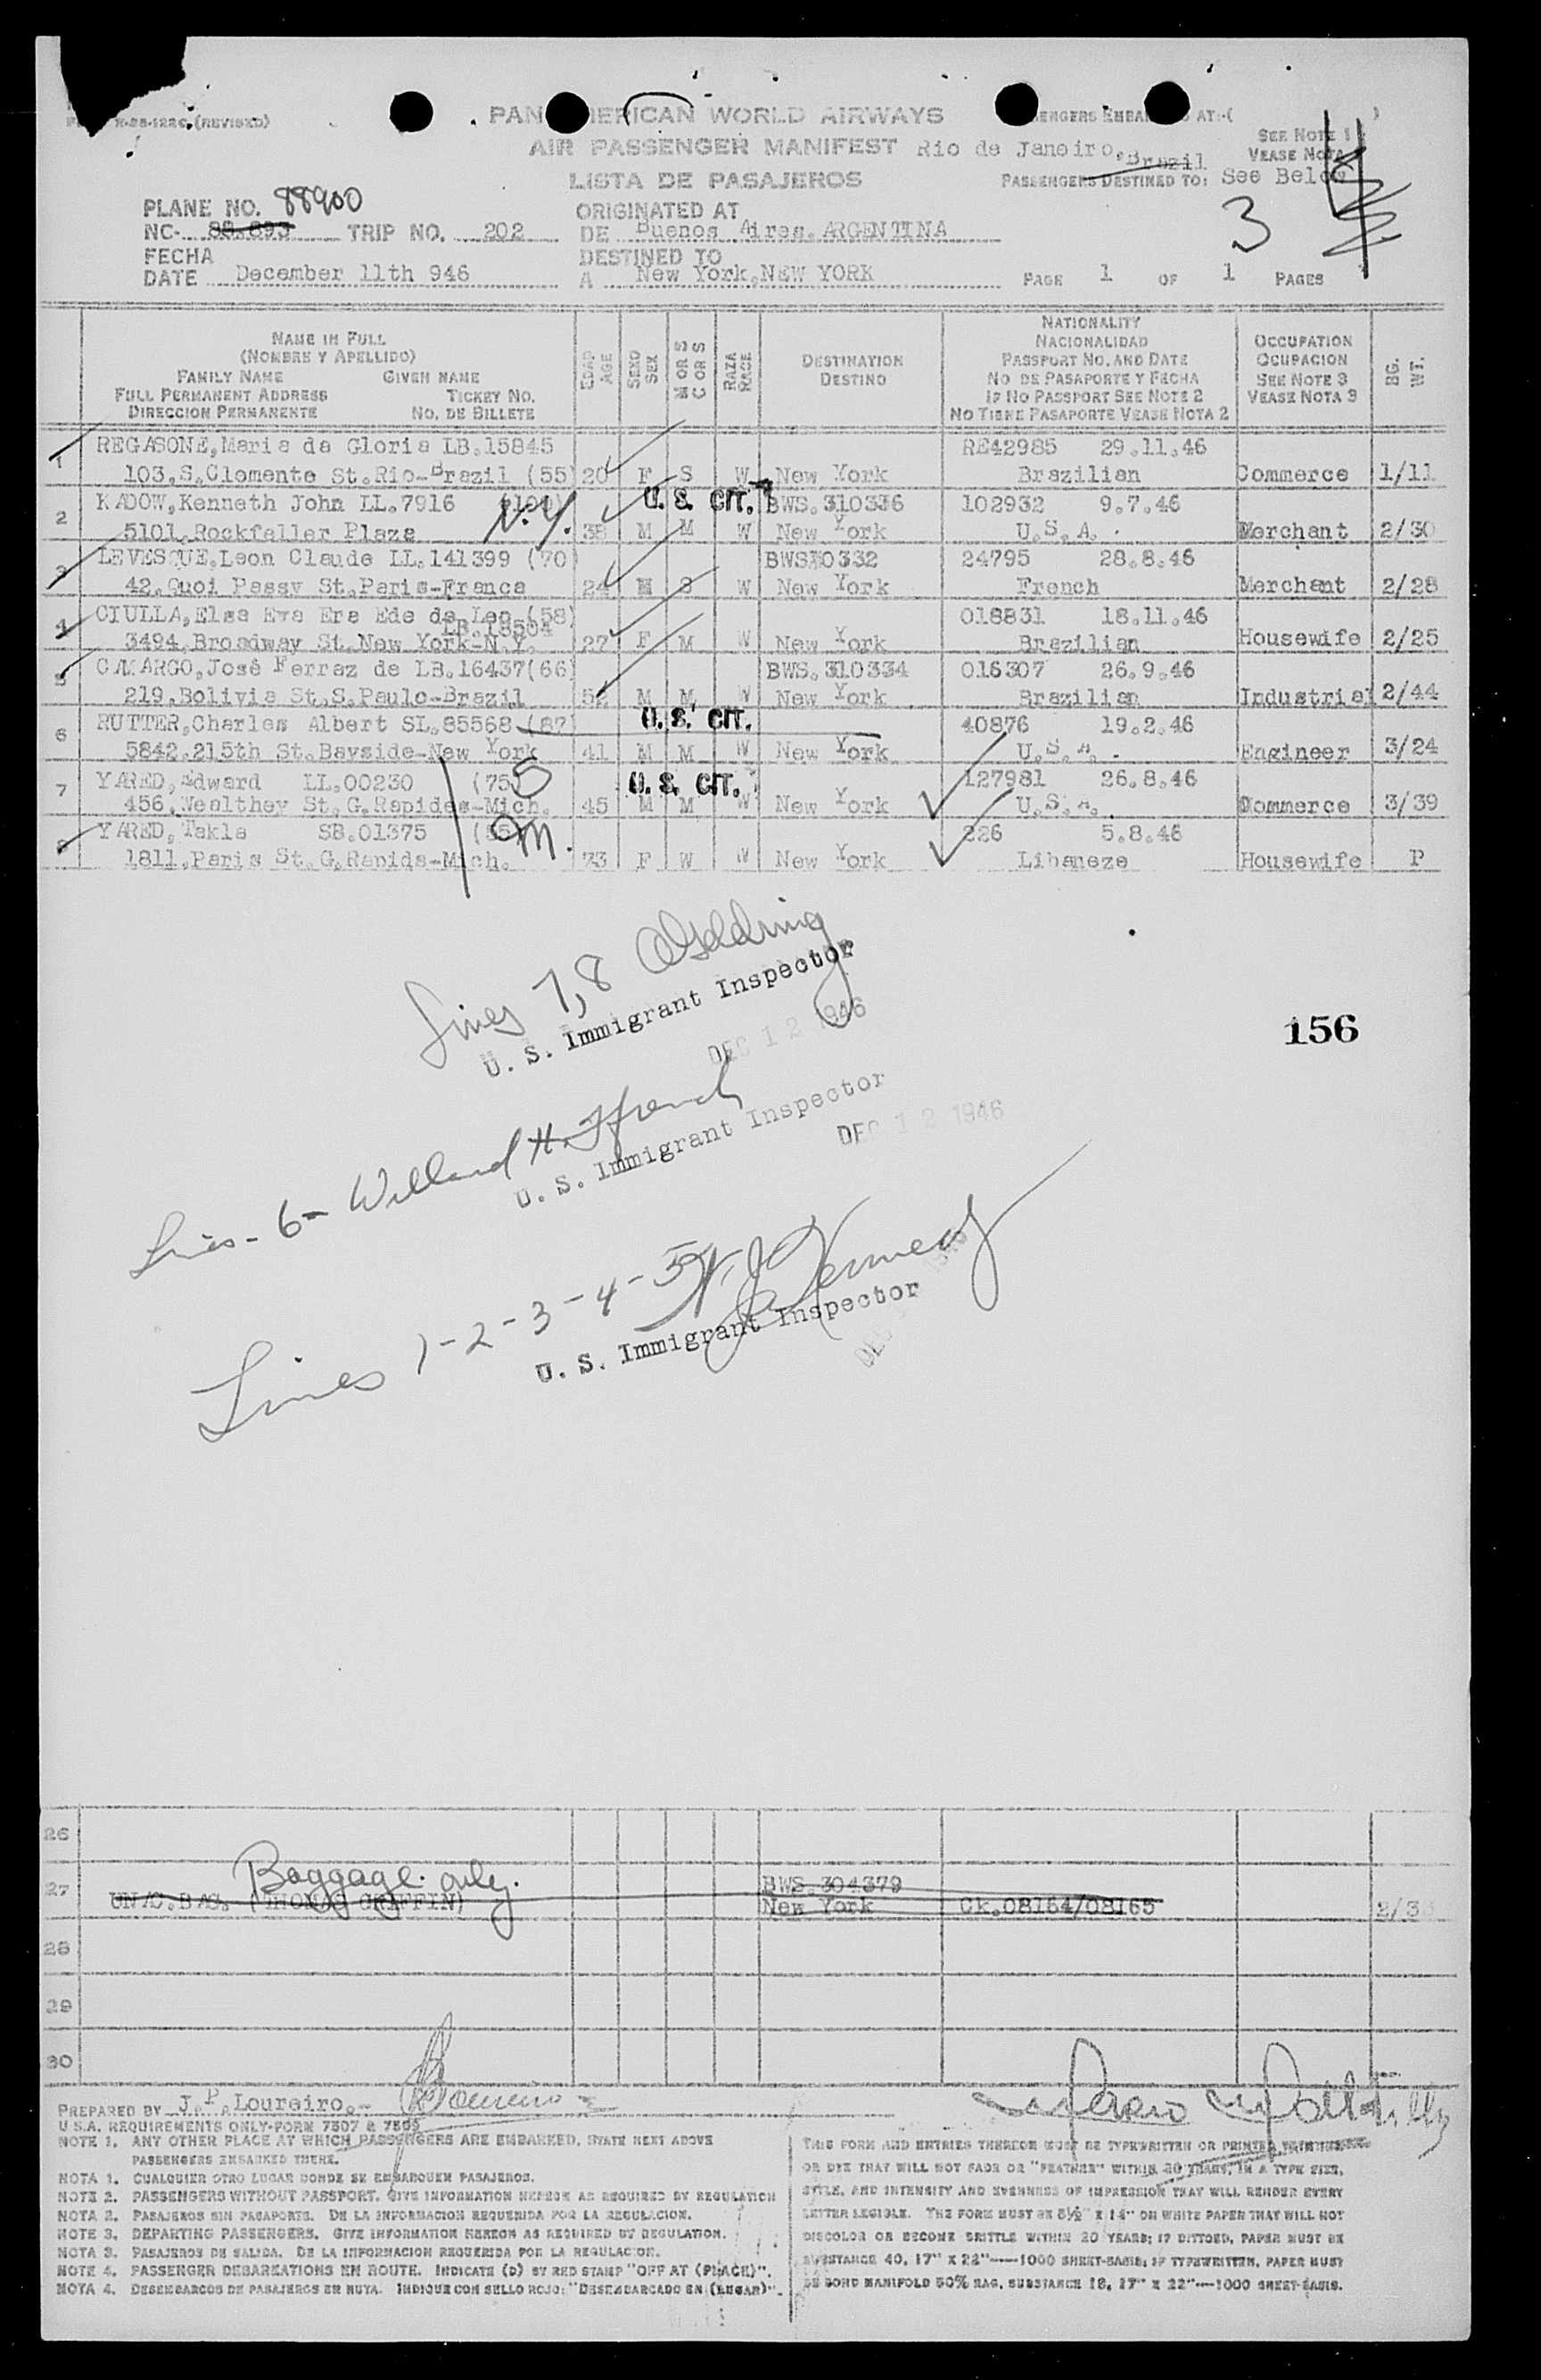 (REVISED)
PAN AMERICAN WORLD AIRWAYS
AIR PASSENGER MANIFEST
LISTA DE PASAJEROS
PASSENGERS EMBARKED AT:-( )
Rio de Janeiro, Brazil
SEE NOTE 1
VEASE NOTA
PASSENGERS DESTINED TO: See Below
3
PLANE NO. 88900
NC- 88.893 TRIP NO. 202
FECHA
DATE December 11th 946
ORIGINATED AT
DE Buenos Aires. ARGENTINA
DESTINED TO
A New York, NEW YORK
PAGE 1 OF 1 PAGES
NAME IN FULL
(NOMBRE Y APELLIDO)
FAMILY NAME GIVEN NAME
FULL PERMANENT ADDRESS TICKET NO.
DIRECCION PERMANENTE NO. DE BILLETE
EDAD AGE
SEXO SEX
M OR S C OR S
RAZA RACE
DESTINATION
DESTINO
NATIONALITY
NACIONALIDAD
PASSPORT NO. AND DATE
NO DE PASAPORTE Y FECHA
IF NO PASSPORT SEE NOTE 2
NO TIENE PASAPORTE VEASE NOTA 2
OCCUPATION
OCUPACION
SEE NOTE 3
VEASE NOTA 3
BG. WT.
1 REGASONE, Maria da Gloria LB.15845 RE42985 29.11.46
103, S.Clemente St. Rio-Brazil (55) 20 F S W New York Brazilian Commerce 1/11
2 KADOW, Kenneth John LL.7916 N.Y. U. S. CIT. BWS.310336 102932 9.7.46
5101, Rockfaller Plaza 38 M M W New York U.S.A. Merchant 2/30
3 LEVESQUE, Leon Claude LL.141399 (70) BWS30332 24795 28.8.46
42, Quoi Passy St. Paris-France 24 M S W New York French Merchant 2/28
4 CIULLA, Elsa Eva Era Ede de Leo (58) 018831 18.11.46
LB.18504
3494, Broadway St. New York-N.Y. 27 F M W New York Brazilian Housewife 2/25
5 CAMARGO, José Ferraz de LB.16437(66) BWS.310334 016307 26.9.46
219, Bolivia St. S.Paulo-Brazil 52 M M W New York Brazilian Industrial 2/44
6 RUTTER, Charles Albert SL.85568 (87) U. S. CIT. 40876 19.2.46
5842, 215th St. Bayside-New York 41 M M W New York U.S.A. Engineer 3/24
7 YARED, Edward LL.00230 (75) U. S. CIT. 127981 26.8.46
456, Wealthey St. G.Rapides-Mich. 45 M M W New York U.S.A. Commerce 3/39
8 YARED, Takla SB.01375 226 5.8.46
1811, Paris St. G.Rapids-Mich. 73 F W W New York Libaneze Housewife P
Lines 7, 8
U. S. Immigrant Inspector
DEC 12 1946
156
Lines - 6 - Willard H. Ffrench
U. S. Immigrant Inspector
DEC 12 1946
Lines 1-2-3-4-5 Kennedy
U. S. Immigrant Inspector
26
Baggage only.
27 UN/C.BAG. (THOMAS GRIFFIN) BWS.304379
New York Ck.08164/08165
28
29
30
PREPARED BY J.P. Loureiro.-
U.S.A. REQUIREMENTS ONLY-FORM 7507 & 7509
NOTE 1. ANY OTHER PLACE AT WHICH PASSENGERS ARE EMBARKED, STATE NEXT ABOVE
PASSENGERS EMBARKED THERE.
NOTA 1. CUALQUIER OTRO LUGAR DONDE SE EMBARQUEN PASAJEROS.
NOTE 2. PASSENGERS WITHOUT PASSPORT. GIVE INFORMATION HEREON AS REQUIRED BY REGULATION
NOTA 2. PASAJEROS SIN PASAPORTE. DE LA INFORMACION REQUERIDA POR LA REGULACION.
NOTE 3. DEPARTING PASSENGERS. GIVE INFORMATION HEREON AS REQUIRED BY REGULATION.
NOTA 3. PASAJEROS DE SALIDA. DE LA INFORMACION REQUERIDA POR LA REGULACION.
NOTE 4. PASSENGER DEBARKATIONS EN ROUTE. INDICATE (D) BY RED STAMP "OFF AT (PLACE)".
NOTA 4. DESEMBARCOS DE PASAJEROS EN RUTA. INDIQUE CON SELLO ROJO: "DESEMBARCADO EN (LUGAR)".
THIS FORM AND ENTRIES THEREON MUST BE TYPEWRITTEN OR PRINTED
OR DYE THAT WILL NOT FADE OR "FEATHER" WITHIN 20 YEARS, IN A TYPE SIZE,
STYLE, AND INTENSITY AND EVENNESS OF IMPRESSION THAT WILL RENDER EVERY
LETTER LEGIBLE. THE FORM MUST BE 8½" X 14" ON WHITE PAPER THAT WILL NOT
DISCOLOR OR BECOME BRITTLE WITHIN 20 YEARS; IF DITTOED, PAPER MUST BE
SUBSTANCE 40, 17" X 22"----1000 SHEET-BASIS; IF TYPEWRITTEN, PAPER MUST
BE BOND MANIFOLD 50% RAG, SUBSTANCE 18, 17" X 22"---1000 SHEET-BASIS.